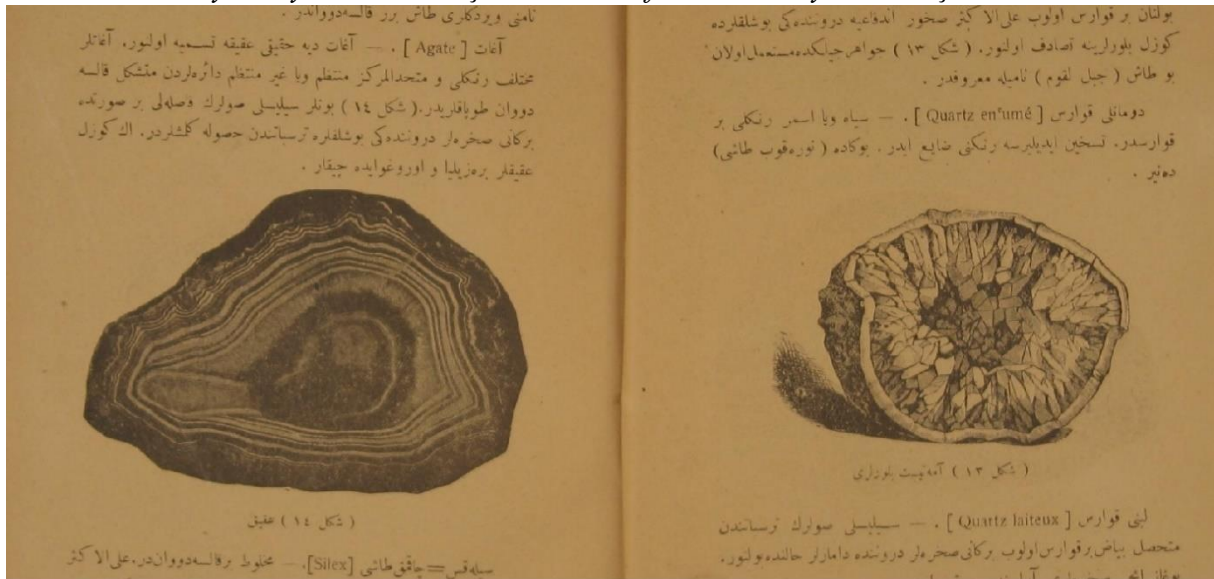 بولنان بر قوارس اولوب على الا كثر صخور اندفاعيه دروننده كى بوشلقلرده
كوزل بلورلرينه تصادف اولنور. ( شكل ١٣ ) جواهرجيلكده مستعمل اولان
بو طاش ( جبل لقوم ) ناميله معروفدر .
دومانلى قوارس [ Quartz enfumé ] . — سياه ويا اسمر رنكلى بر
قوارسدر. تسخين ايديليرسه رنكنى ضايع ايدر . بوكاده ( نوره قوب طاشى )
دهنير .
( شكل ١٣ ) آمه تيست بلورلرى
لبنى قوارس [ Quartz laiteux ] . — سيليسلى صولرك ترسباتندن
متحصل بياض بر قوارس اولوب بركانى صخره لر دروننده دامارلر حالنده بولنور.
نامنى ويردكلرى طاش برر قالسه دوواندر .
آغات [ Agate ] . — آغات ديه حقيقى عقيقه تسميه اولنور. آغاتلر
مختلف رنكلى و متحدالمركز منتظم ويا غير منتظم دائره لردن متشكل قالسه
دووان طوپاقلريدر. ( شكل ١٤ ) بونلر سيليسلى صولرك فصله لى بر صورتده
بركانى صخره لر دروننده كى بوشلقلره ترسباتندن حصوله كلمشلردر. اك كوزل
عقيقلر بره زيليا و اوروغوايده چيقار .
( شكل ١٤ ) عقيق
سيله قس = چاقمق طاشى [Silex]. — مخلوط بر قالسه دوواندر. على الا كثر